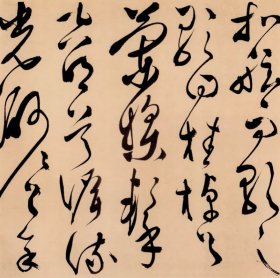 扣舷而歌之
歌曰桂棹兮
蘭槳擊
空明兮泝流
光渺渺兮予